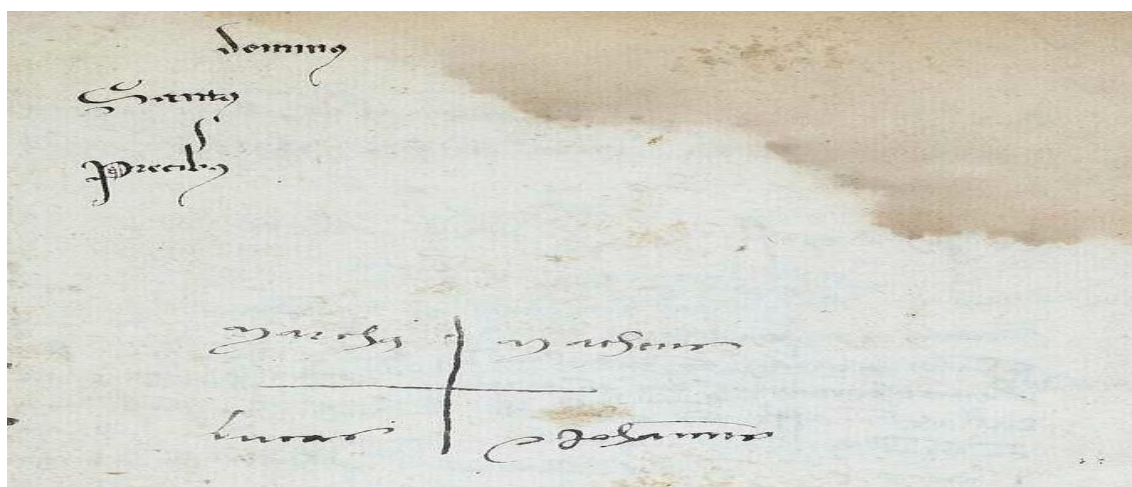 dominus
Santus
Precibus
Marchus Matheus
Lucas Johannes